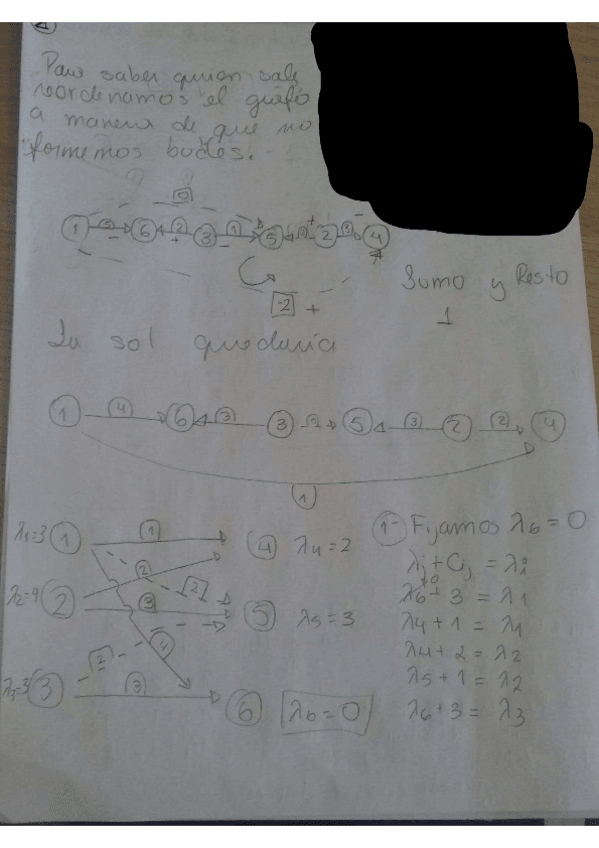 Para saber quien sale
reordenamos el grafo
a manera de que no
formemos bucles.
0
1 5 - 6 2 + 3 1 - 5 2 + 2 3 - 4
-2 +
Sumo y Resto
1
La sol quedaría
1 4 6 3 3 0 5 3 2 2 4
1
λ1=3 1 1 4 λ4=2
2
λ2=4 2 3 2 5 λ5=3
4
λ3=3 3 2 3 6 λ6=0
1- Fijamos λ6=0
λj + Cij = λi
λ6 + 3 = λ1
λ4 + 1 = λ1
λ4 + 2 = λ2
λ5 + 1 = λ2
λ6 + 3 = λ3